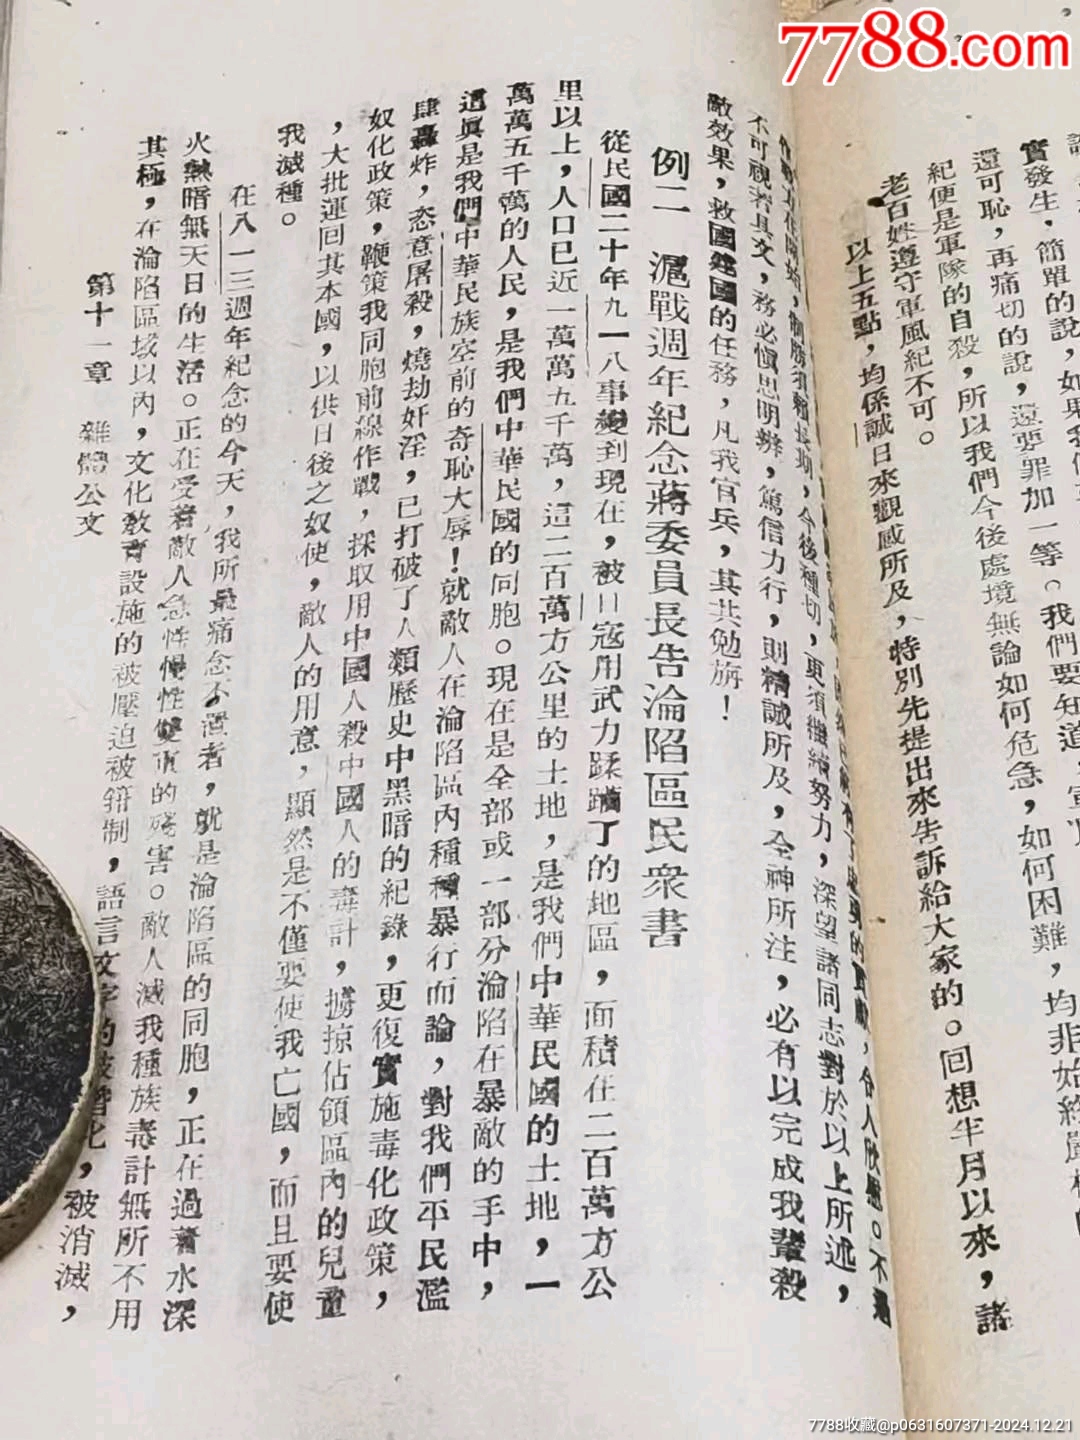 7788.com
實發生，簡單的說，如果我
還可恥，再痛切的說，還要罪加一等。我們要知道，軍
紀便是軍隊的自殺，所以我們今後處境無論如何危急，如何困難，均非始終嚴
老百姓遵守軍風紀不可。
以上五點，均係誠日來觀感所及，特別先提出來告訴給大家的。回想半月以來，諸
今後種切，更須繼續努力，深望諸同志對於以上所述，
不可視若具文，務必愼思明辨，篤信力行，則精誠所及，全神所注，必有以完成我輩殺
敵效果，救國建國的任務，凡我官兵，其共勉旃！
例二　滬戰週年紀念蔣委員長告淪陷區民衆書
從民國二十年九一八事變到現在，被日寇用武力蹂躪了的地區，面積在二百萬方公
里以上，人口已近一萬萬五千萬，這二百萬方公里的土地，是我們中華民國的土地，一
萬萬五千萬的人民，是我們中華民國的同胞。現在是全部或一部分淪陷在暴敵的手中，
這眞是我們中華民族空前的奇恥大辱！就敵人在淪陷區內種種暴行而論，對我們平民濫
肆轟炸，恣意屠殺，燒劫奸淫，已打破了人類歷史中黑暗的紀錄，更復實施毒化政策，
奴化政策，鞭策我同胞前線作戰，採取用中國人殺中國人的毒計，擄掠佔領區內的兒童
，大批運回其本國，以供日後之奴使，敵人的用意，顯然是不僅要使我亡國，而且要使
我滅種。
在八一三週年紀念的今天，我所最痛念不置者，就是淪陷區的同胞，正在過着水深
火熱暗無天日的生活。正在受着敵人急性慢性雙重的殘害。敵人滅我種族毒計無所不用
其極，在淪陷區域以內，文化敎育設施的被壓迫被箝制，語言文字的被 化，被消滅，
第十一章　雜體公文
7788收藏@p0631607371-2024.12.21